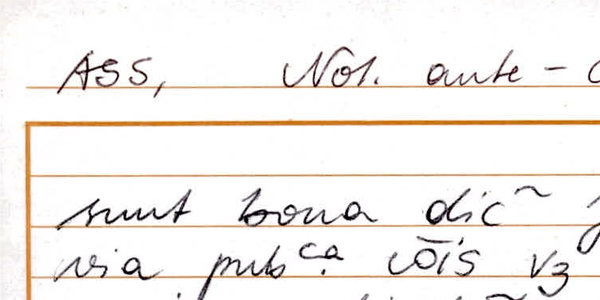 ASS, Not. ante -
sunt bona dic~
via pub^ca. cōis vz